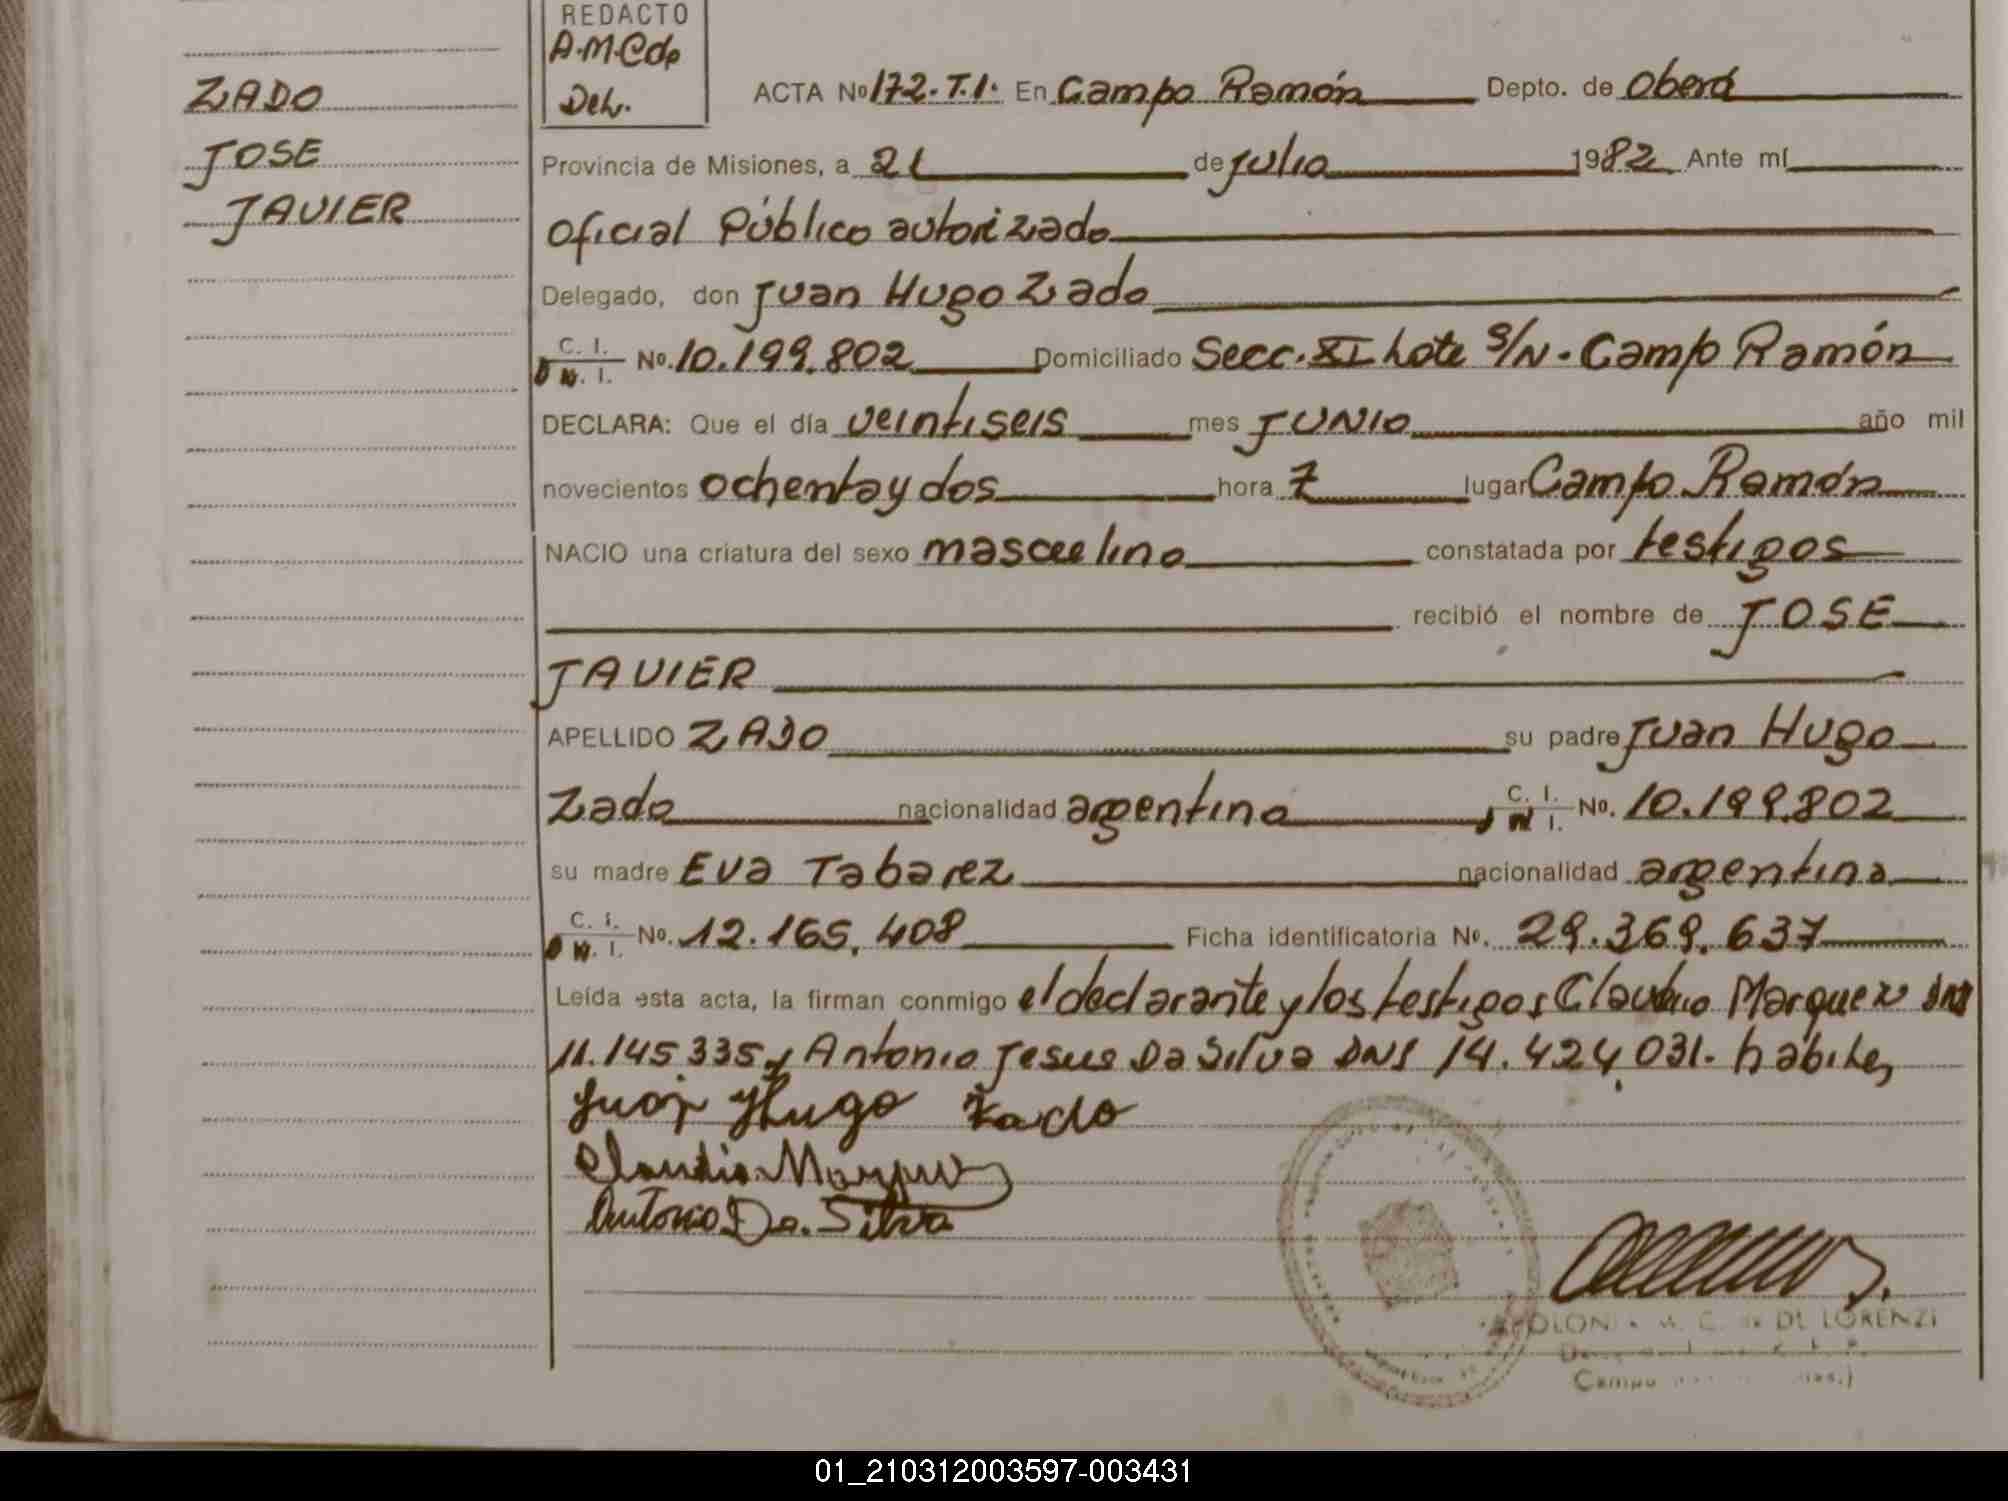 ZADO
JOSE
JAVIER
REDACTO
A.M.C de
Del.
ACTA Nº 172. T.I. En Campo Ramón Depto. de Oberá
Provincia de Misiones, a 21 de Julio 1982 Ante mí
Oficial Público autorizado
Delegado, don Juan Hugo Zado
C. I. D N. I. No. 10.199.802 Domiciliado Secc. XI Lote S/N. Campo Ramón
DECLARA: Que el día veintiseis mes JUNIO año mil
novecientos ochenta y dos hora 7 lugar Campo Ramón
NACIO una criatura del sexo masculino constatada por testigos
recibió el nombre de JOSE
JAVIER
APELLIDO ZADO su padre Juan Hugo
Zado nacionalidad argentina C. I. D N I. No. 10.199.802
su madre Eva Tabarez nacionalidad argentina
C. I. D N. I. No. 12.165.408 Ficha identificatoria No. 29.369.637
Leída esta acta, la firman conmigo el declarante y los testigos Claudio Marquez DNI
11.145335 y Antonio Jesus Da Silva DNI 14.424.031. hábiles
Juan Hugo Zado
Claudio Marquez
Antonio Da. Silva
M. C. de DE LORENZI
Campo
01_210312003597-003431